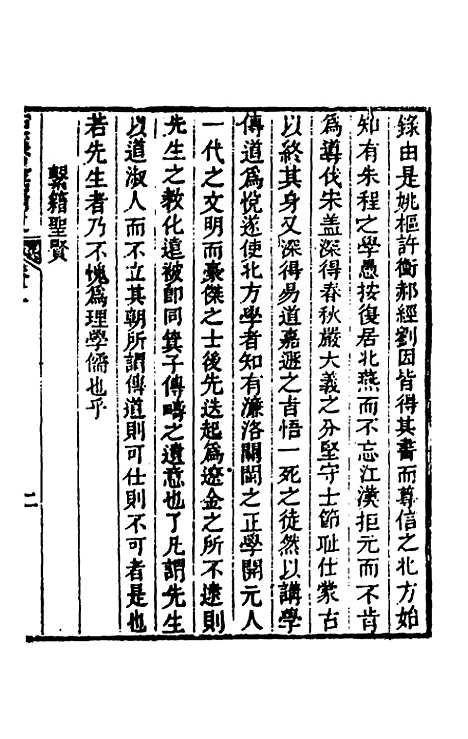 錄由是姚樞許衡郝經劉因皆得其書而尊信之北方始
知有朱程之學愚按復居北燕而不忘江漢拒元而不肯
為導伐宋盖深得春秋嚴大義之分堅守士節耻仕蒙古
以終其身又深得易道嘉遯之吉悟一死之徒然以講學
傳道為悅遂使北方學者知有濂洛關閩之正學開元人
一代之文明而豪傑之士後先迭起為遼金之所不逮則
先生之教化遠被即同箕子傳疇之遺意也了凡謂先生
以道淑人而不立其朝所謂傳道則可仕則不可者是也
若先生者乃不愧為理學儒也乎
繫籍聖賢
二